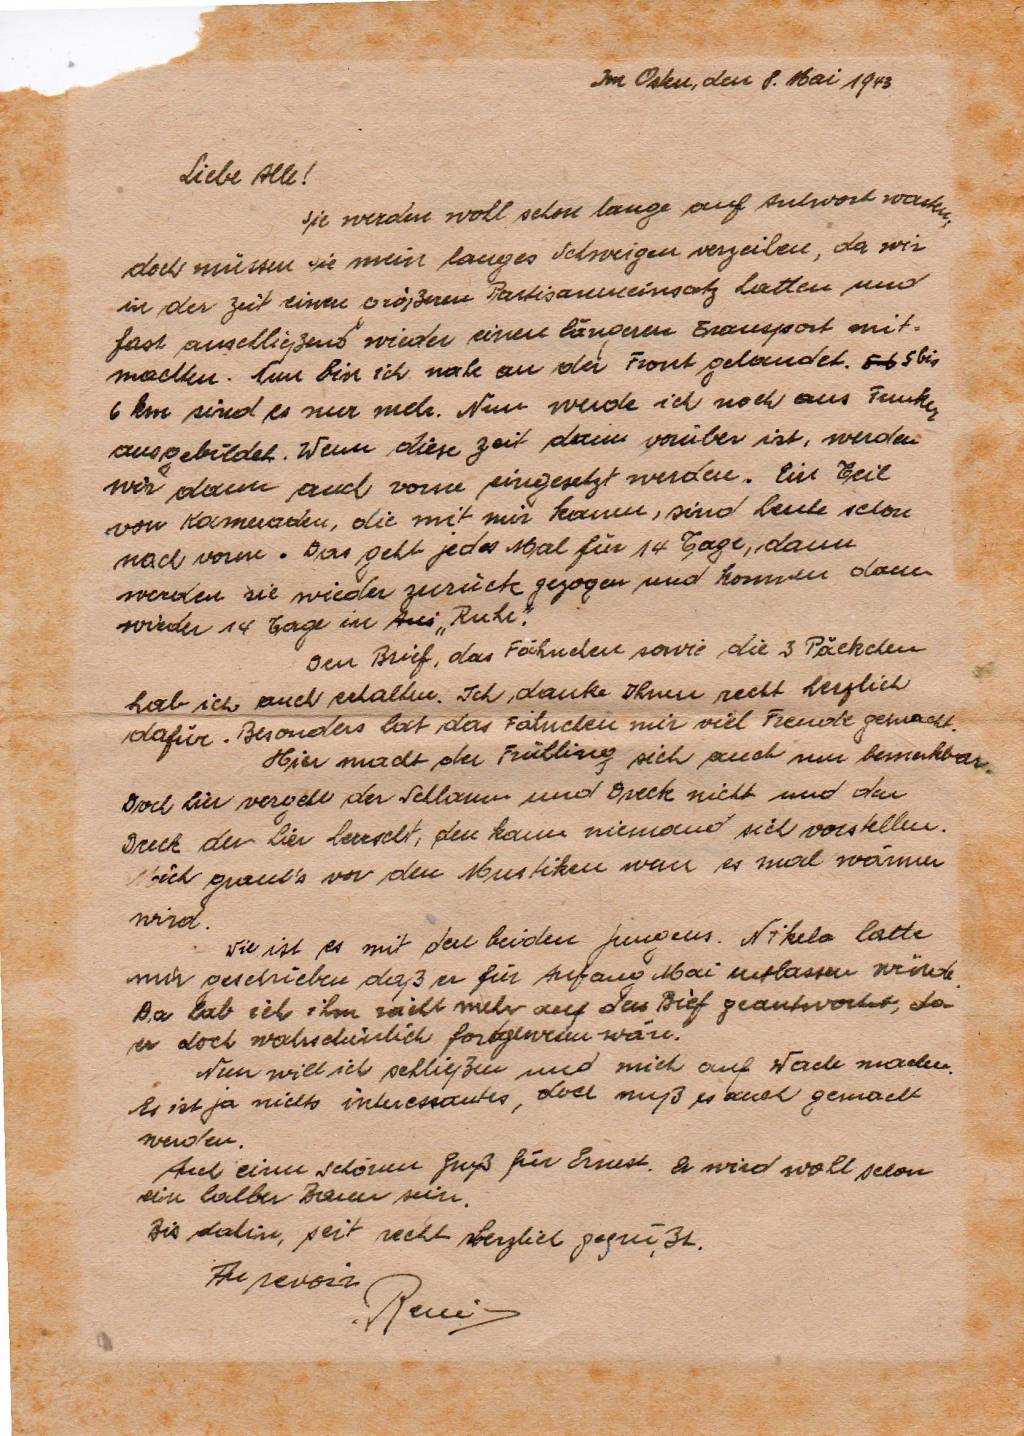 Im Osten, den 8. Mai 1943
Liebe Alle!
Sie werden wohl schon lange auf Antwort warten,
doch müssen sie mein langes Schweigen verzeihen, da wir
in der Zeit einen größeren Partisaneneinsatz hatten und
fast anschließend wieder einen längeren Transport mit-
machten. Nun bin ich nahe an der Front gelandet. 5 bis
6 km sind es nur mehr. Nun werde ich noch aus Funker
ausgebildet. Wenn diese Zeit dann vorüber ist, werden
wir dann auch vorne eingesetzt werden. Ein Teil
von Kameraden, die mit mir kamen, sind heute schon
nach vorne. Das geht jedes Mal für 14 Tage, dann
werden sie wieder zurück gezogen und kommen dann
wieder 14 Tage in „Ruhe".
Den Brief, das Fähnchen sowie die 3 Päckchen
hab ich auch erhalten. Ich danke Ihnen recht herzlich
dafür. Besonders hat das Fähnchen mir viel Freude gemacht.
Hier macht der Frühling sich auch nun bemerkbar.
Doch hier vergeht der Schlamm und Dreck nicht und den
Dreck der hier herrscht, den kann niemand sich vorstellen.
Mich graut's vor den Mustiken wenn es mal wärmer
wird.
Wie ist es mit den beiden Jungens. Nikela hatte
mir geschrieben daß er für Anfang Mai entlassen würde.
Da hab ich ihm nicht mehr auf den Brief geantwortet, da
er doch wahrscheinlich fortgewesen wäre.
Nun will ich schließen und mich auf Wache machen.
Es ist ja nichts interessantes, doch muß es auch gemacht
werden.
Auch einen schönen Gruß für Ernest. Er wird wohl schon
ein halber Bauer sein.
Bis dahin, seit recht herzlich gegrüßt.
Au revoir
René